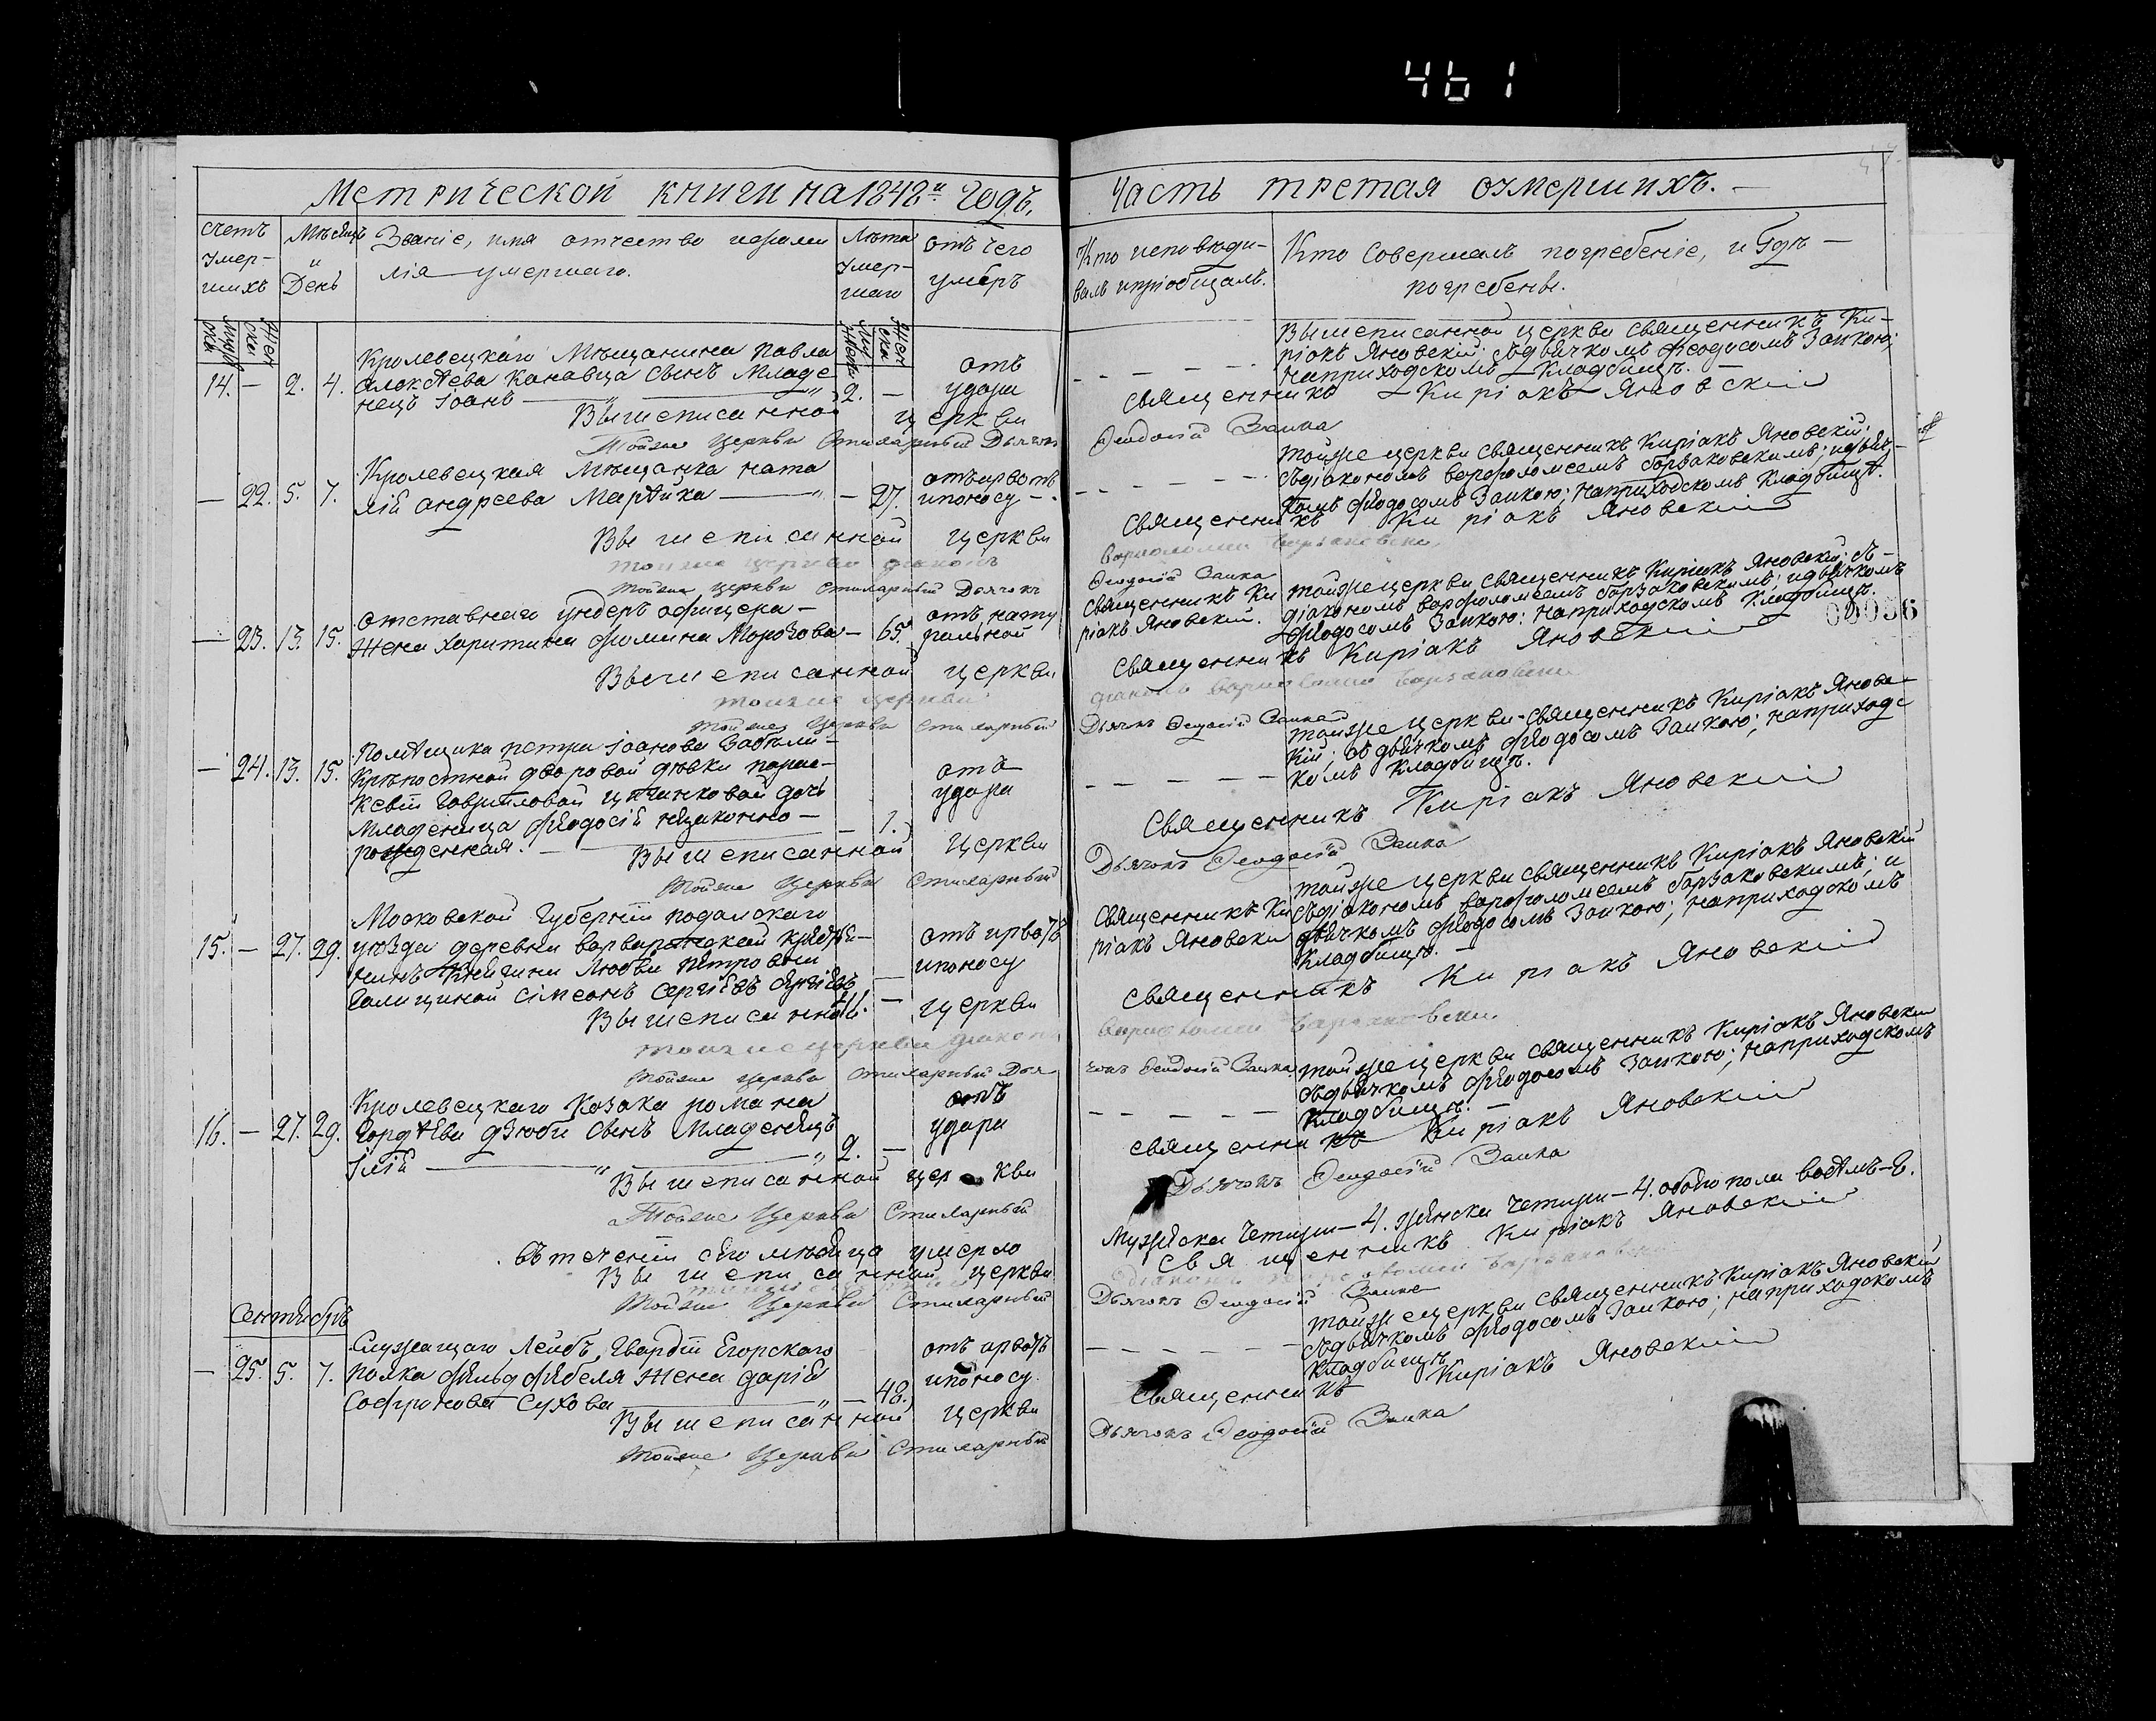 461
Метрической книги на 1848й Годъ,
Часть третая оумершихъ. —
Счетъ умер-шихъ
Мѣсяцъ и День
Званіе, имя отчество и фами
лія умершаго.
Лѣта умер-шаго
отъ чего
умеръ
Кто исповѣды-
валъ и пріобщалъ.
Кто Совершалъ погребеніе, и Гдѣ —
погребены.
Кролевецкаго Мѣщанина Павла
14. — 2. 4. Алексѣева Канавца Сынъ Младе-
нецъ Іоанъ — 2. — отъ удара
Вышеписанной церкви Священникъ Ки-
ріакъ Яновскій; съ дьячкомъ Феодосомъ Заикою;
на приходскомъ Кладбищѣ. —
Вышеписанной церкви Священникъ Киріакъ Яновскій
Тойже Церкви Стихарный Дьячокъ Феодосій Заика
Кролевецкая Мѣщанка ната
— 22. 5. 7. лія андреева — 27. отъ рвоты и поносу —
Тойже церкви Священникъ Киріакъ Яновскій;
съ діакономъ Варфоломеемъ Борзаковскимъ; и дьяч-
комъ Феодосомъ Заикою; на приходскомъ Кладбищѣ.
Вышеписанной церкви Священникъ Киріакъ Яновскій
Тойже церкви діаконъ Варфоломей Борзаковскій
Тойже церкви Стихарный Дьячокъ Феодосій Заика
Отставнаго ундеръ офицера —
— 23. 13. 15. Жена Харитина Фомина Морозова — 65. отъ нату ральной
Священникъ Ки
ріакъ Яновскій.
Тойже церкви Священникъ Киріакъ Яновскій; съ —
діакономъ Варфоломеемъ Борзаковскимъ; и дьячкомъ
Феодосомъ Заикою; на приходскомъ Кладбищѣ.
00056
Вышеписанной церкви Священникъ Киріакъ Яновскій
Тойже церкви діаконъ Варфоломей Борзаковскій
Тойже Церкви Стихарный Дьячокъ Феодосій Заика
Помѣщика петра Іоанова
— 24. 13. 15. Крѣпостной дворовой дѣвки параc-
кевіи Гавриловой дочь
Младеница Феодосія незаконно —
рожденная. — — 1. отъ удара
Тойже церкви Священникъ Киріакъ Яновс-
кій; съ дьячкомъ Феодосомъ Заикою; на приходс-
комъ Кладбищѣ.
Вышеписанной Церкви Священникъ Киріакъ Яновскій
Тойже Церкви Стихарный Дьячокъ Феодосій Заика
Московской Губерніи подолскаго
15. — 27. 29. уѣзда деревни крестья-
нинъ Княгини Любви Петровны
Галициной Сімеонъ Сергіевъ — отъ рвоты и поносу
Священникъ Ки
ріакъ Яновски
Тойже церкви Священникъ Киріакъ Яновскій
съ діакономъ Варфоломеемъ Борзаковскимъ; и
дьячкомъ Феодосомъ Заикою; на приходскомъ
Кладбищѣ. —
Вышеписанной церкви Священникъ Киріакъ Яновскій
Тойже церкви діаконъ Варфоломей Борзаковскій
Тойже Церкви Стихарный Дьячокъ Феодосій Заика
Кролевецкаго Козака романа
16. — 27. 29. Гордѣева Дзюбы Сынъ Младенецъ
Ілій — 2. — отъ удара
Тойже церкви Священникъ Киріакъ Яновски
съ дьячкомъ Феодосомъ Заикою; на приходскомъ
Кладбищѣ. —
Вышеписанной церкви Священникъ Киріакъ Яновскій
Тойже Церкви Стихарный Дьячокъ Феодосій Заика
Въ теченіи сего мѣсяца умерло Мужеска Четыри — 4. женска Четыри — 4. обоего пола восѣмъ — 8.
Вышеписанной церкви Священникъ Киріакъ Яновскій
Діаконъ Варфоломей Борзаковскій
Тойже Церкви Стихарный Дьячокъ Феодосій Заика
Сентябрь
Служащаго Лейбъ, Гвардіи Егорскаго
— 25. 5. 7. полка Фельдфебеля Жена Дарія
Софронова Сухова — 48. отъ рвоты и поносу.
Тойже церкви Священникъ Киріакъ Яновскій
съ дьячкомъ Феодосомъ Заикою; на приходскомъ
Кладбищѣ
Вышеписанной церкви Священникъ Киріакъ Яновскій
Тойже Церкви Стихарный Дьячокъ Феодосій Заика